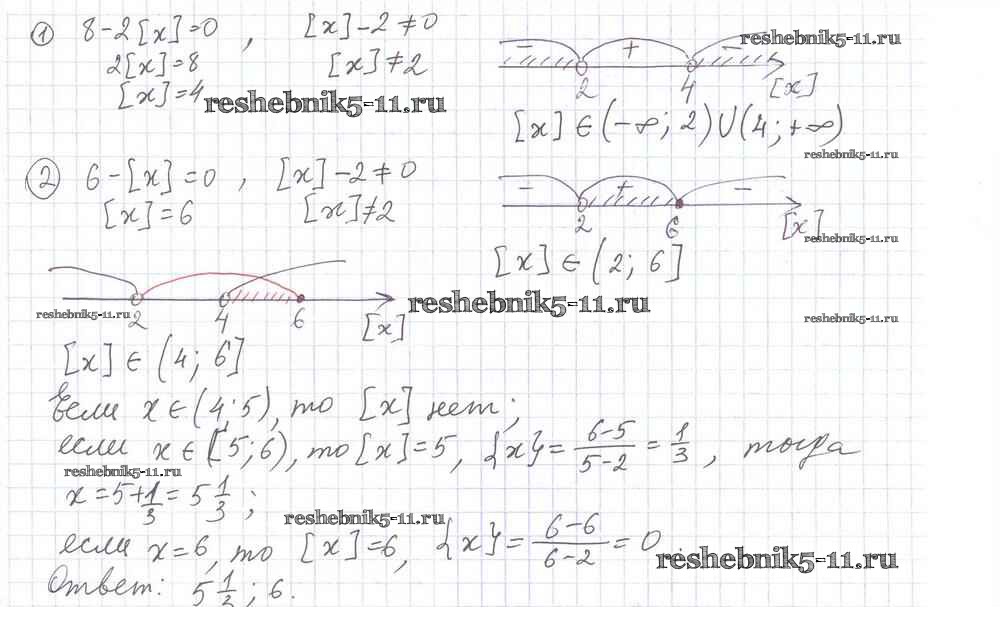 ① 8-2[x]=0, [x]-2≠0
2[x]=8 [x]≠2
[x]=4
reshebnik5-11.ru
- + -
reshebnik5-11.ru
2 4 [x]
[x] ∈ (-∞; 2) ∪ (4; +∞)
reshebnik5-11.ru
② 6-[x]=0, [x]-2≠0
[x]=6 [x]≠2
- + -
2 6 [x]
reshebnik5-11.ru
[x] ∈ (2; 6]
reshebnik5-11.ru
reshebnik5-11.ru
reshebnik5-11.ru
2 4 6 [x]
[x] ∈ (4; 6]
Если x ∈ (4; 5), то [x] нет;
если x ∈ [5; 6), то [x]=5, {x}= (6-5)/(5-2) = 1/3, тогда
reshebnik5-11.ru
x=5+1/3=5 1/3;
reshebnik5-11.ru
если x=6, то [x]=6, {x}= (6-6)/(6-2) = 0.
reshebnik5-11.ru
Ответ: 5 1/3; 6.